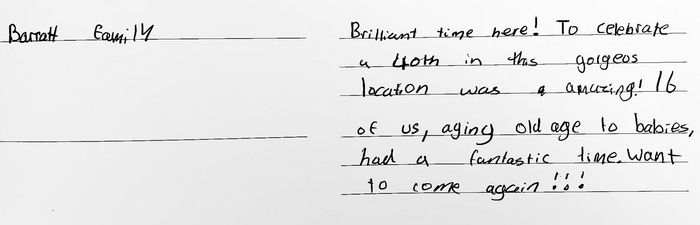 Barratt Family
Brilliant time here! To celebrate
a 40th in this gorgeos
location was a amazing! 16
of us, aging old age to babies,
had a fantastic time. Want
to come again!!!